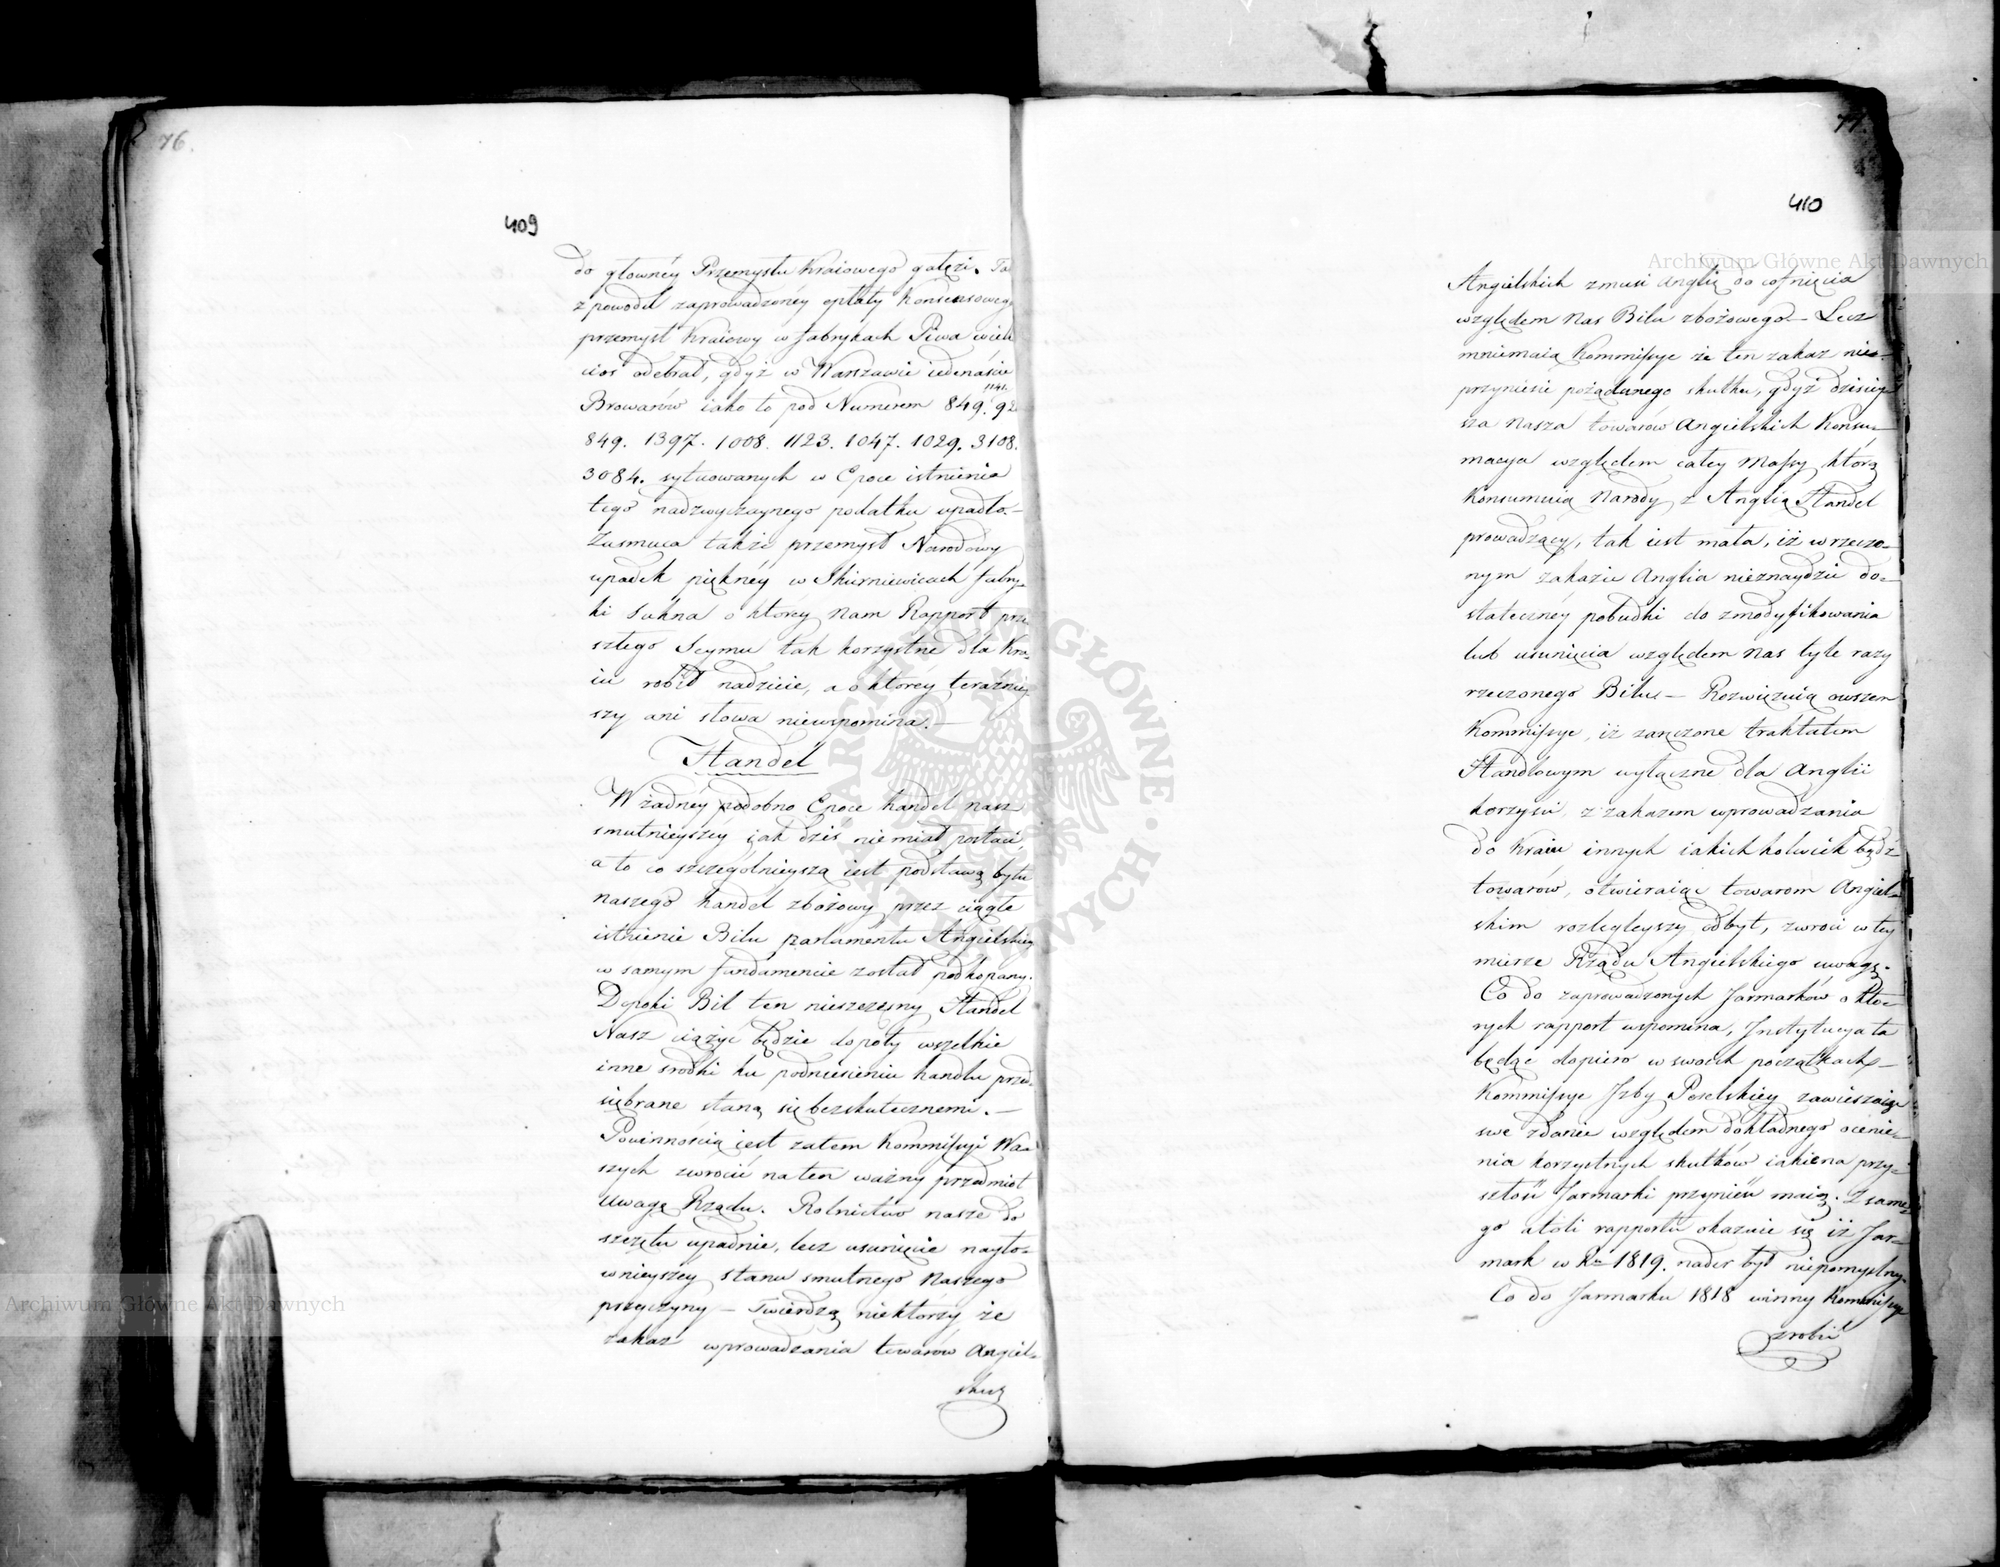 76.
409
do głownéy Przemysłu Kraiowego gałęzi. Ta
z powodu zaprowadzonéy opłaty Konsensowego
przemysł Kraiowy w fabrykach Piwa wielki
cios odebrał, gdyż w Warszawie iedenaście
Browarów iako to pod Numerem 849. 1141. 92
849. 1397. 1008. 1123. 1047. 1029. 3108.
3084. sytuowanych w Epoce istnienia
tego nadzwyczaynego podatku upadło.—
Zasmuca także przemysł Narodowy
upadek pięknéy w Skierniewicach fabry-
ki Sukna o któréy nam Rapport prze
szłego Seymu tak korzystne dla Kra-
iu robił nadzieie, a o którey teraźniey
szy ani słowa niewspomina.—
Handel
W żadnéy podobno Epoce handel nasz
smutnieyszey jak dziś nie miał postaci,
a to co szczególnieyszą iest podstawą bytu
naszego handel zbożowy przez ciągłe
istnienie Bilu parlamentu Angielskiey
w samym fundamencie został podkopany.
Dopoki Bil ten nieszczęsny Handel
Nasz ciążyć będzie dopóty wszelkie
inne srodki ku podniesieniu handlu przed-
sięBrane staną się bezskutecznemi.—
Powinnością iest zatem Kommissyi Wa-
szych zwrocić na ten ważny przedmiot
Uwagę Rządu. Rolnictwo nasze do
szczętu upadnie, lecz usunięcie naygło-
wnieyszey stanu smutnego Naszego
przyczyny — Twierdzą niektórzy że
zakaz wprowadzania towarów Angiel-
skich
77.
410
Angielskich zmusi Anglię do cofnięcia
względem Nas Bilu zbożowego.— Lecz
mniemaią Kommissye że ten zakaz nie-
przyniesie pożądanego skutku, gdyż dzisiey-
sza Nasza towarów Angielskich Konsu-
macya względem całey Massy, którą
Konsumuią Narody z Anglią Handel
prowadzący, tak iest mała, iż w rzeczo-
nym zakazie Anglia nieznaydzie do-
stateczney pobudki do zmodyfikowania
lub usunięcia względem Nas tyle razy
rzeczonego Bilu — Rozwiązuią owszem
Kommissye, iż zaręczone traktatem
Handlowym wyłączne dla Anglii
korzyści, z zakazem wprowadzania
do Kraiu innych iakichkolwiek bądź
towarów, otwieraiąc towarom Angiel-
skim rozlegleyszy odbyt, zwroci w tey
mierze Rządu Angielskiego uwagę.
Co do zaprowadzonych Jarmarków o któ-
rych rapport wspomina, Instytucya ta
będąc dopiero w swoich początkach —
Kommissye Izby Poselskiey zawieszaią
swe zdanie względem dokładnego ocenie-
nia korzystnych skutków iakie na przy-
szłość Jarmarki przynieść maią. Z same-
go atoli rapportu okazuie się iż Jar-
mark w Ru 1819. nader był niepomyślny.
Co do Jarmarku 1818 winny Kommissye
zrobić
Archiwum Główne Akt Dawnych
Archiwum Główne Akt Dawnych